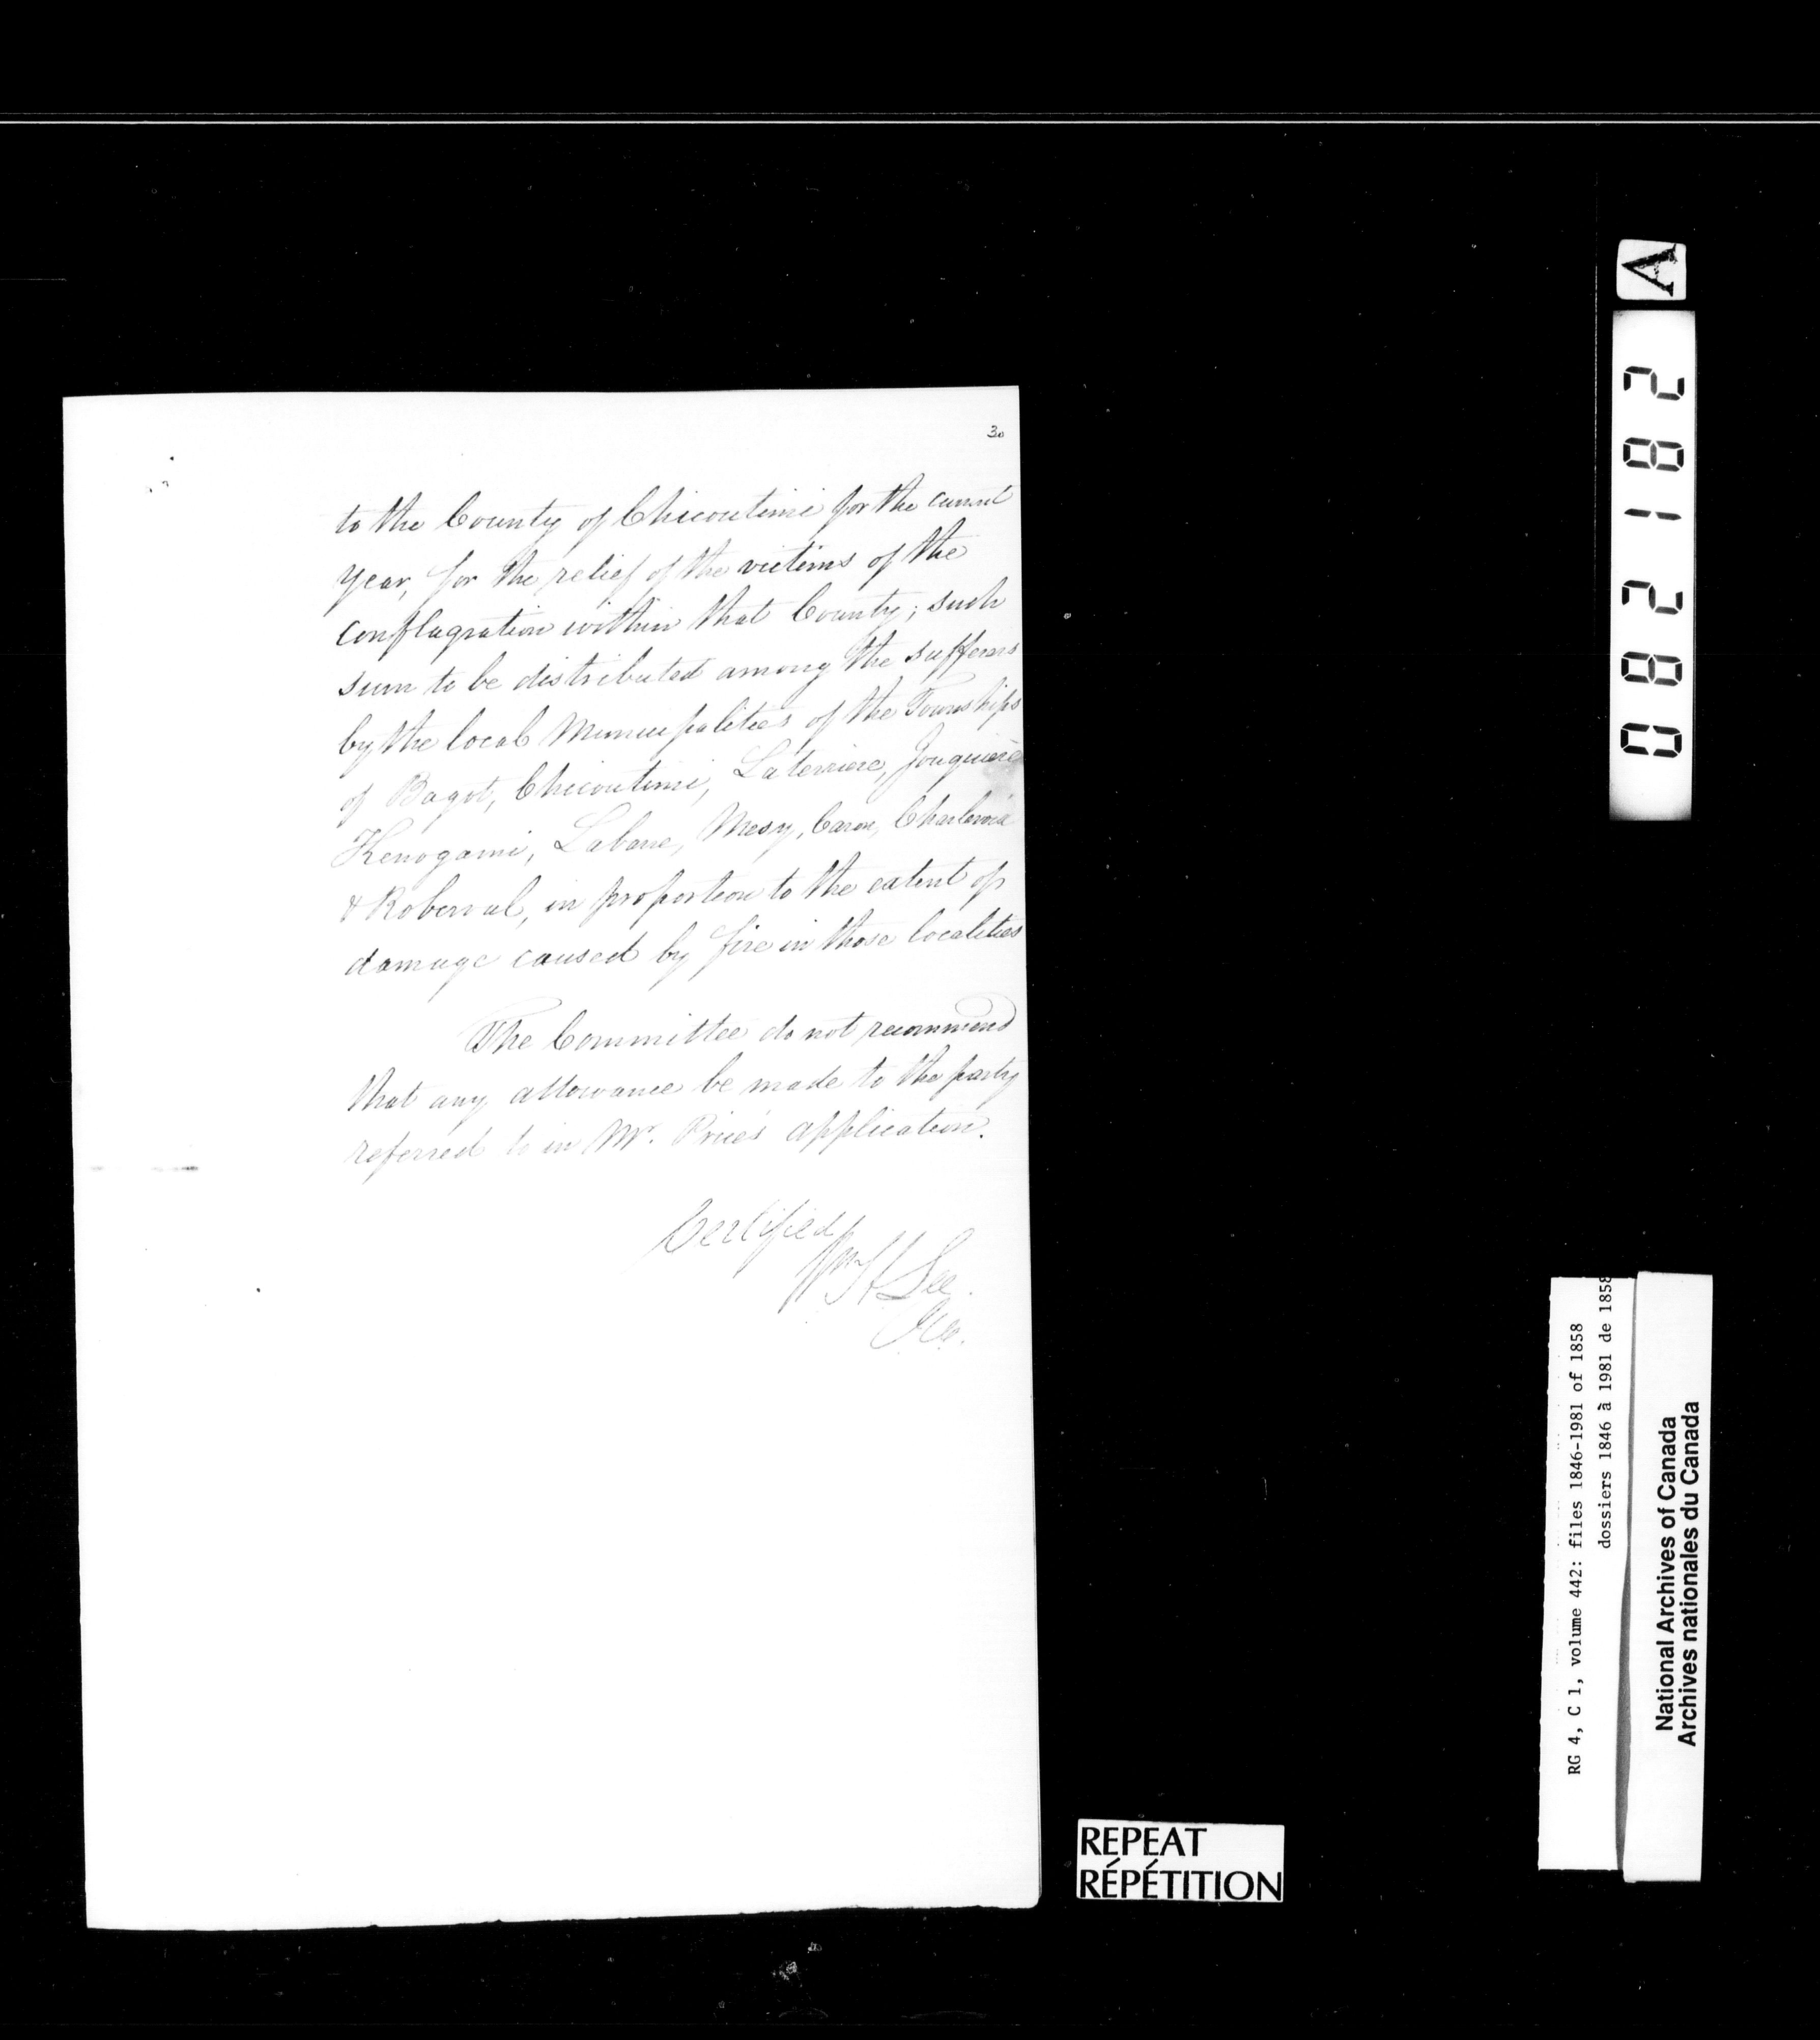 30
to the County of Chicoutimi for the current
year, for the relief of the victims of the
conflagration within that County; such
sum to be distributed among the sufferers
by the local Municipalities of the Townships
of Bagot, Chicoutimi, Laterriere, Jonquiere
Kenogami, Labarre, Mesy, Caron, Charlevoix
& Roberval, in proportion to the extent of
damage caused by fire in those localities
The Committee do not recommend
that any allowance be made to the party
referred to in Mr. Price's application.
Certified
Wm H Lee
A
082182
RG 4, C 1, volume 442: files 1846-1981 of 1858
dossiers 1846 à 1981 de 1858
National Archives of Canada
Archives nationales du Canada
REPEAT
RÉPÉTITION